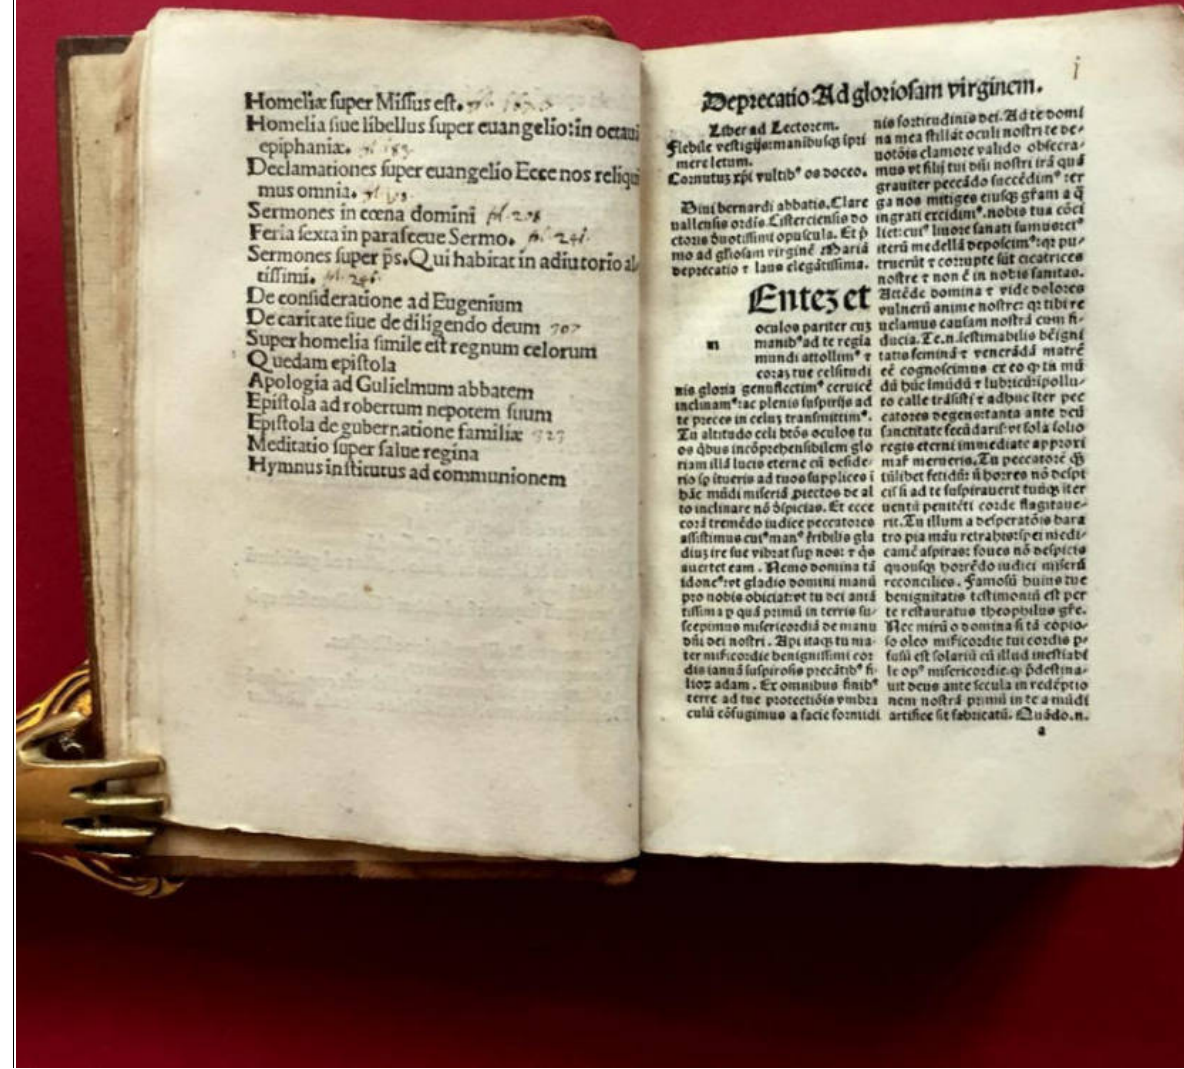 Homeliæ ſuper Miſſus eſt.
Homelia ſiue libellus ſuper euangelio:in octaui
epiphaniæ. 183
Declamationes ſuper euangelio Ecce nos reliqui
mus omnia.
Sermones in cœna domini
Feria ſexta in paraſceue Sermo. 241.
Sermones ſuper p̄s.Qui habitat in adiutorio al
tiſſimi. 246.
De conſideratione ad Eugenium
De caritate ſiue de diligendo deum
Super homelia ſimile eſt regnum celorum
Quedam epiſtola
Apologia ad Gulielmum abbatem
Epiſtola ad robertum nepotem ſuum
Epiſtola de gubernatione familiæ
Meditatio ſuper ſalue regina
Hymnus inſtitutus ad communionem
i
Deprecatio Ad glorioſam virginem.
Liber ad Lectorem.
Flebile veſtigijs:manibuſqꝫ ipri
mere letum.
Cornutus xp̄i vultib⁹ os doceo.
Diui bernardi abbatis.Clare
uallenſis ordīs.Ciſtercienſis do
ctoris duotiſſimi opuſcula. Et p̄
mo ad gl̄ioſam virginē Mariā
deprecatio ⁊ laus elegātiſſima.
Enteꝫ et
oculos pariter cuꝫ
m manib⁹ad te regia
mundi attollim⁹ ⁊
coraꝫ tue celſitudi
nis gloria genuflectim⁹ ceruicē
inclinam⁹:ac plenis ſuſpirijs ad
te preces in celuꝫ tranſmittim⁹.
Tu altitudo celi btōs oculos tu
os q̇bus incōprehenſibilem glo
riam illā lucis eterne cū deſide-
rio ſp ītueris ad tuos ſupplices ī
hāc mūdi miſeriā piectos de al
to inclinare nō dſpicias. Et ecce
corā tremēdo iudice peccatores
aſſiſtimus cui⁹man⁹ tribilis gla
diuꝫ ire ſue vibrat ſup nos: ⁊ q̇s
auertet eam . Nemo domina tā
idone⁹:vt gladio domini manū
pro nobis obiciat:vt tu dei amā
tiſſima p quā primū in terris ſu-
ſcepimus miſericordiā de manu
dn̄i dei noſtri . Api itaqꝫ tu ma-
ter mīſicordie benigniſſimi cor
dis ianuā ſuſpiroſis precātib⁹ fi-
lioꝫ adam . Ex omnibus finib⁹
terre ad tue protectiōis vmbra
culū cōfugimus a facie formidi
nis fortitudinis dei. Ad te domi
na mea ſtillāt oculi noſtri te de-
uotōis clamore valido obſecra-
mus vt filij tui dn̄i noſtri irā quā
grauiter peccādo ſuccēdim⁹ ter
ga nos mitiges eiuſqꝫ gr̄am a q̄
ingrati excidim⁹.nobis tua cōci
liet:cui⁹ liuore ſanati ſumus:ei⁹
iterū medellā depoſcim⁹:qꝛ pu-
truerūt ⁊ corrupte ſūt cicatrices
noſtre ⁊ non ē in nobis ſanitas.
Attēde domina ⁊ vide dolores
vulnerū anime noſtre: qꝛ tibi re
uelamus cauſam noſtrā cum fi-
ducia. Te.n.īeſtimabilis bēigni
tatis feminā ⁊ venerādā matrē
eē cognoſcimus ex eo ꝙ tā mū
dū hūc īmūdū ⁊ lubricū:ipollu-
to calle trāſiſti ⁊ adhuc iter pec
catores degens:tanta ante deū
ſanctitate fecūdaris:vt ſola ſolio
regis eterni immediate approxi
mař merueris.Tu peccatorē q̄ꝫ
tūlibet fetidū: n̄ horres nō deſpi
cis ſi ad te ſuſpirauerit tuūqꝫ iter
uentū penitēti corde flagitaue-
rit.Tu illum a deſperatōis bara
tro pia māu retrahis:ſpei medi-
camē aſpiras: foues nō deſpicis
quouſqꝫ horrēdo iudici miſerū
reconcilies. Famoſū huius tue
benignitatis teſtimoniū eſt per
te reſtauratus theophilus gře.
Nec mirū o domina ſi tā copio-
ſo oleo mīſicordie tui cordis p̄-
fuſū eſt ſolariū cū illud ineſtiabī
le op⁹ miſericordie.q̄ p̄deſtina-
uit deus ante ſecula in redēptio
nem noſtrā primū in te a mūdi
artifice ſit fabricatū. Quādo.n.
a